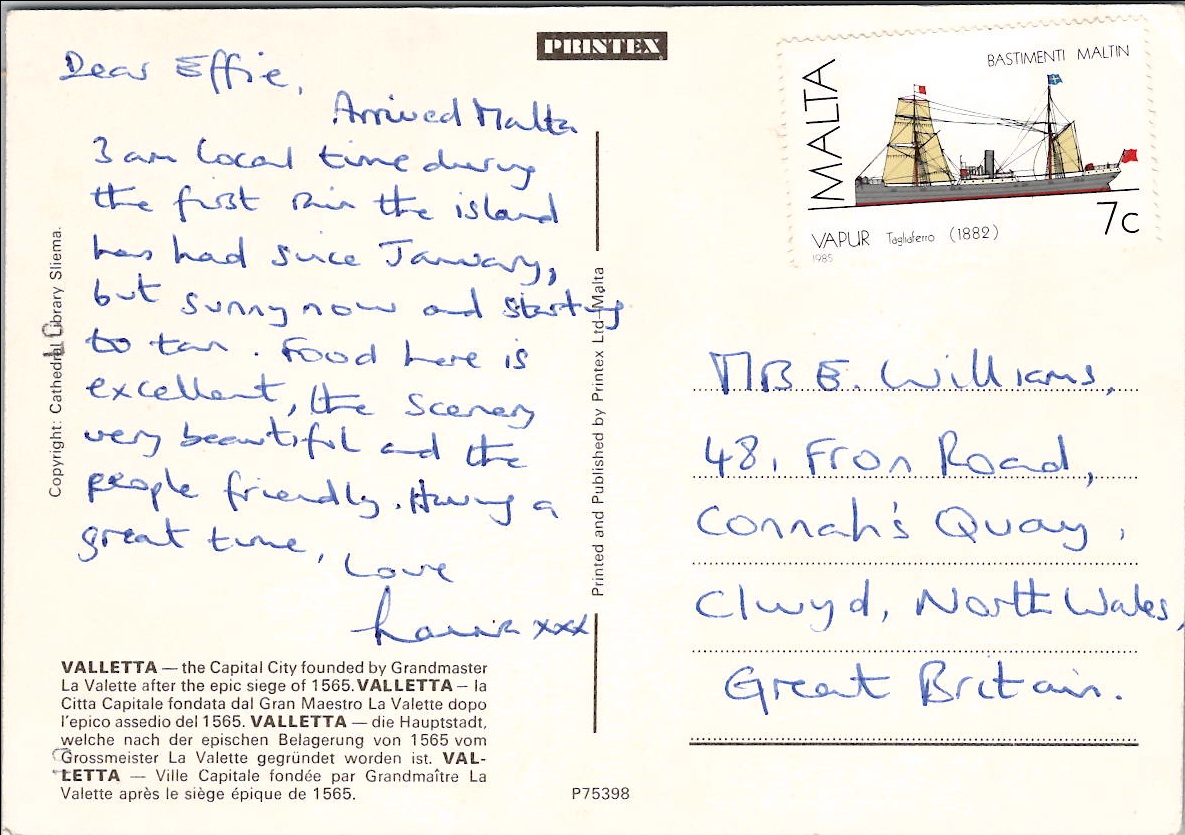 PRINTEX
Dear Effie,
Arrived Malta
3 am local time during
the first rain the island
has had since January,
but sunny now and starting
to tan. Food here is
excellent, the scenery
very beautiful and the
people friendly. Having a
great time,
Love
xxx
VALLETTA — the Capital City founded by Grandmaster
La Valette after the epic siege of 1565. VALLETTA — la
Citta Capitale fondata dal Gran Maestro La Valette dopo
l'epico assedio del 1565. VALLETTA — die Hauptstadt,
welche nach der epischen Belagerung von 1565 vom
Grossmeister La Valette gegründet worden ist. VAL-
LETTA — Ville Capitale fondée par Grandmaître La
Valette après le siège épique de 1565.
Copyright: Cathedral Library Sliema.
Printed and Published by Printex Ltd-Malta
P75398
MALTA
BASTIMENTI MALTIN
7c
VAPUR Tagliaferro (1882)
1985
E. Williams,
48, Fron Road,
Connah's Quay,
Clwyd, North Wales,
Great Britain.